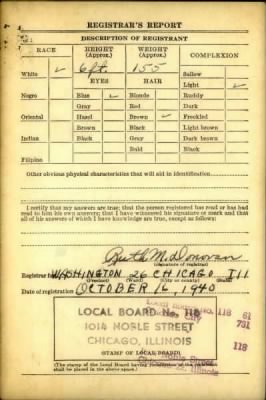 REGISTRAR'S REPORT
DESCRIPTION OF REGISTRANT
RACE HEIGHT (Approx.) WEIGHT (Approx.) COMPLEXION
White ✓ 6 ft. 155 Sallow
EYES HAIR Light ✓
Negro Blue ✓ Blonde Ruddy
Gray Red Dark
Oriental Hazel Brown ✓ Freckled
Brown Black Light brown
Indian Black Gray Dark brown
Bald Black
Filipino
Other obvious physical characteristics that will aid in identification
I certify that my answers are true; that the person registered has read or has
had read to him his own answers; that I have witnessed his signature or mark and that
all of his answers of which I have knowledge are true, except as follows:
Ruth M. Donovan
(Signature of registrar)
Registrar for WASHINGTON 26 CHICAGO Ill
Date of registration OCTOBER 16, 1940
LOCAL BOARD No. 118
1014 NOBLE STREET
CHICAGO, ILLINOIS
(STAMP OF LOCAL BOARD)
No. 118 61
731
118
Noble Street
Illinois
(The stamp of the Local Board having jurisdiction of the registrant
shall be placed in the above space.)